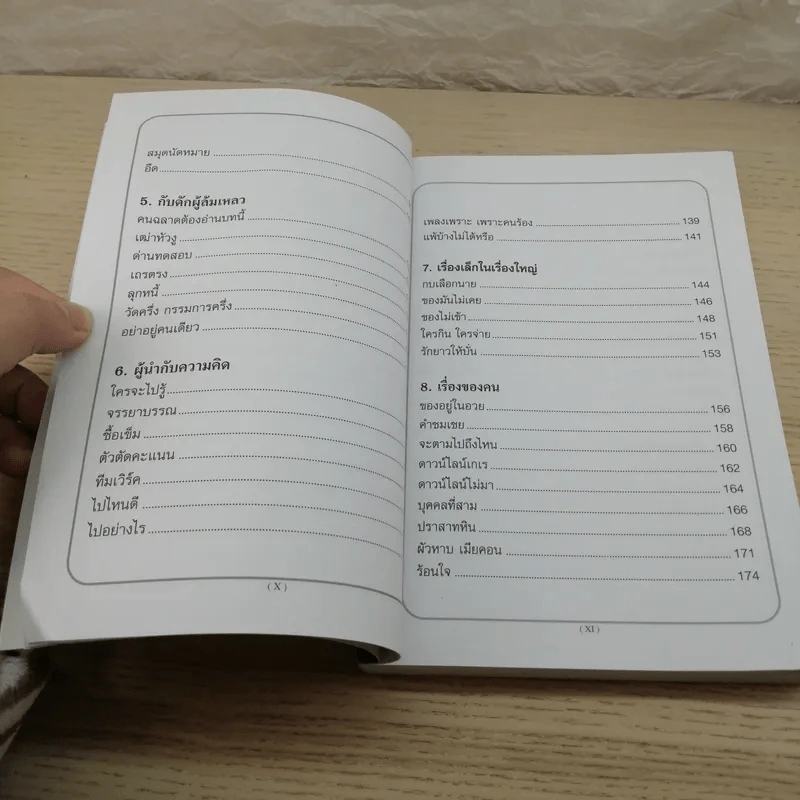 สมุดนัดหมาย
อึด
5. กับดักผู้ล้มเหลว
คนฉลาดต้องอ่านบทนี้
เฒ่าหัวงู
ด่านทดสอบ
เถรตรง
ลูกหนี้
วัดครึ่ง กรรมการครึ่ง
อย่าอยู่คนเดียว
6. ผู้นำกับความคิด
ใครจะไปรู้
จรรยาบรรณ
ซื้อเข็ม
ตัวตัดคะแนน
ทีมเวิร์ค
ไปไหนดี
ไปอย่างไร
(X)
เพลงเพราะ เพราะคนร้อง 139
แพ้บ้างไม่ได้หรือ 141
7. เรื่องเล็กในเรื่องใหญ่
กบเลือกนาย 144
ของมันไม่เคย 146
ของไม่เข้า 148
ใครกิน ใครจ่าย 151
รักยาวให้บั่น 153
8. เรื่องของคน
ของอยู่ในอวย 156
คำชมเชย 158
จะตามไปถึงไหน 160
ดาวน์ไลน์เกเร 162
ดาวน์ไลน์ไม่มา 164
บุคคลที่สาม 166
ปราสาทหิน 168
ผัวหาบ เมียคอน 171
ร้อนใจ 174
(XI)